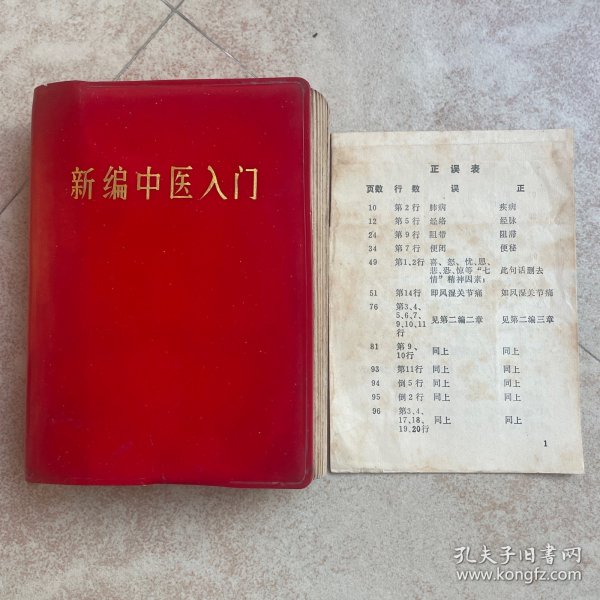 新编中医入门
正误表
页数 行数 误 正
10 第2行 肺病 疾病
12 第5行 经络 经脉
24 第9行 阻带 阻滞
34 第7行 便闭 便秘
49 第1、2行 喜、怒、忧、思、
悲、恐、惊等“七 此句话删去
情”精神因素;
51 第14行 即风湿关节痛 如风湿关节痛
76 第3、4、
5、6、7、 见第二编二章 见第二编三章
9、10、11
行
81 第9、
10行 同上 同上
93 第11行 同上 同上
94 倒5行 同上 同上
95 倒2行 同上 同上
96 第3、4、
17、18、 同上 同上
19、20行
1
孔夫子旧书网
www.kongfz.com